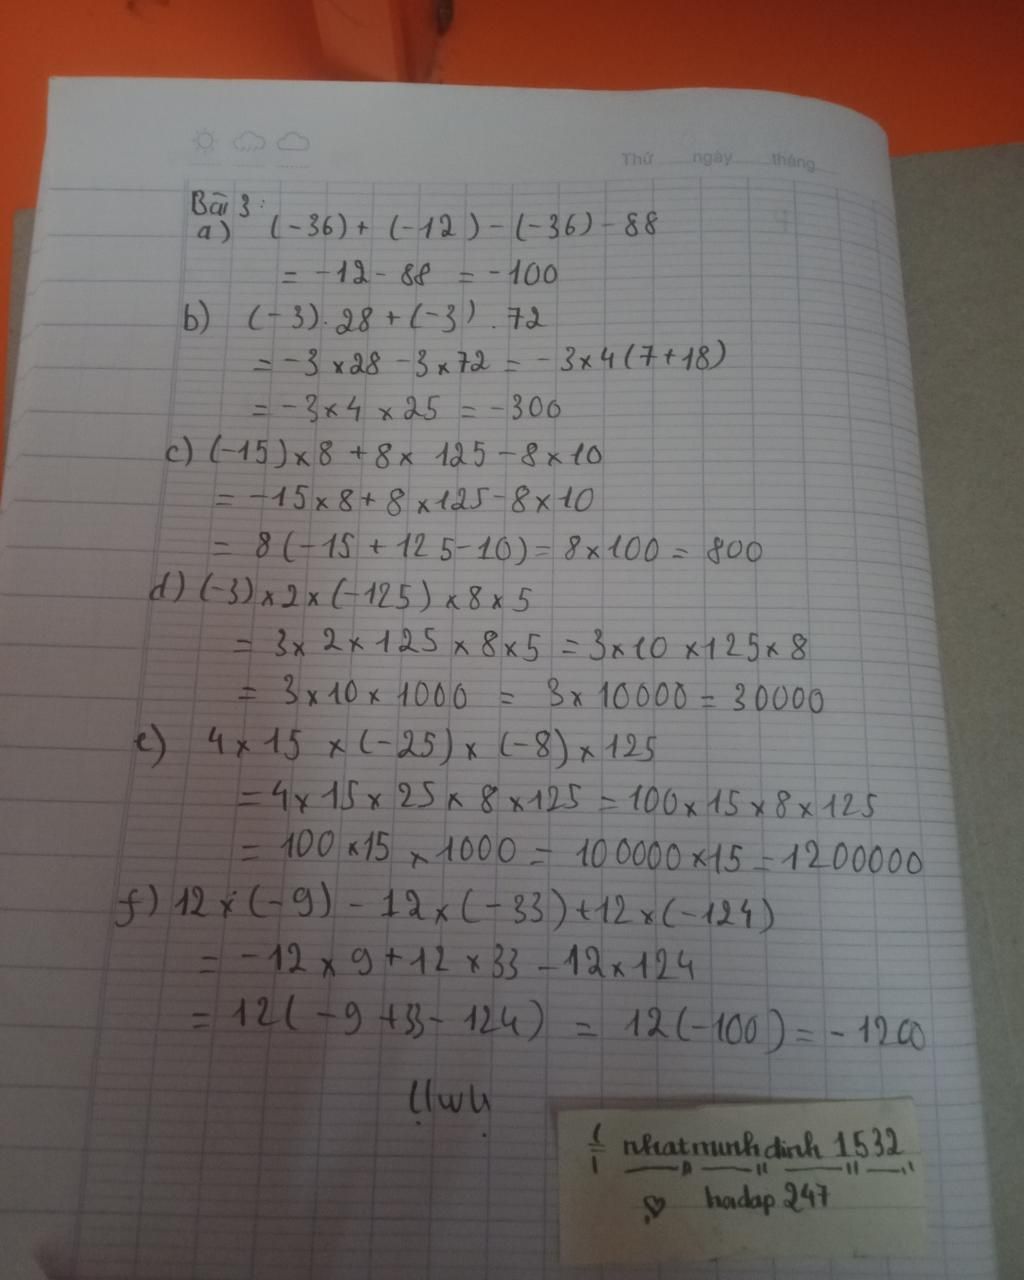 Thứ ngày tháng
Bài 3:
a) (-36) + (-12) - (-36) - 88
= -12 - 88 = -100
b) (-3) . 28 + (-3) . 72
= -3 × 28 - 3 × 72 = -3 × 4 (7 + 18)
= -3 × 4 × 25 = -300
c) (-15) × 8 + 8 × 125 - 8 × 10
= -15 × 8 + 8 × 125 - 8 × 10
= 8 (-15 + 125 - 10) = 8 × 100 = 800
d) (-3) × 2 × (-125) × 8 × 5
= 3 × 2 × 125 × 8 × 5 = 3 × 10 × 125 × 8
= 3 × 10 × 1000 = 3 × 10000 = 30000
e) 4 × 15 × (-25) × (-8) × 125
= 4 × 15 × 25 × 8 × 125 = 100 × 15 × 8 × 125
= 100 × 15 × 1000 = 100000 × 15 = 1200000
f) 12 × (-9) - 12 × (-33) + 12 × (-124)
= -12 × 9 + 12 × 33 - 12 × 124
= 12 (-9 + 33 - 124) = 12 (-100) = -1200
nhatminhdinh 1532
hoidap 247